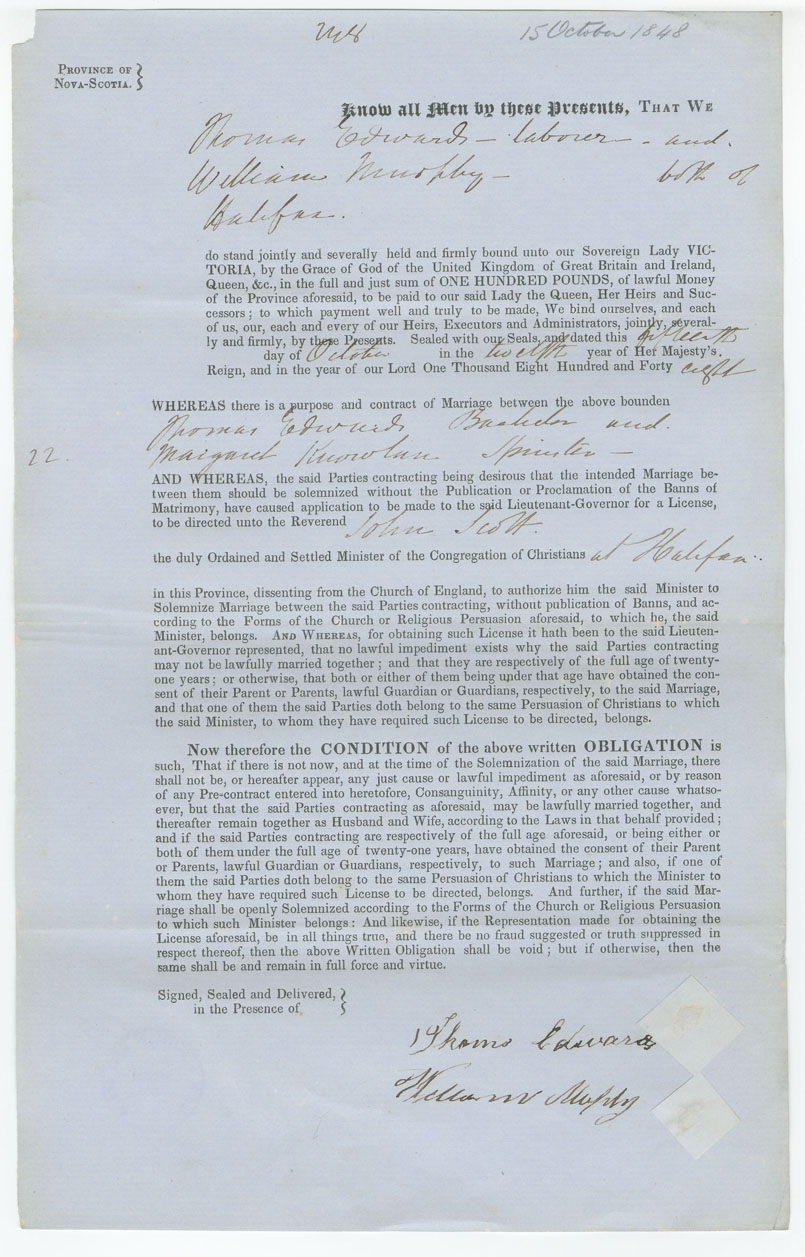 15 October 1848
Province of
Nova-Scotia.
Know all Men by these Presents, That We
Thomas Edwards - labourer - and.
William Murphy - both of
Halifax.
do stand jointly and severally held and firmly bound unto our Sovereign Lady VIC-
TORIA, by the Grace of God of the United Kingdom of Great Britain and Ireland,
Queen, &c., in the full and just sum of ONE HUNDRED POUNDS, of lawful Money
of the Province aforesaid, to be paid to our said Lady the Queen, Her Heirs and Suc-
cessors ; to which payment well and truly to be made, We bind ourselves, and each
of us, our, each and every of our Heirs, Executors and Administrators, jointly, several-
ly and firmly, by these Presents. Sealed with our Seals, and dated this fifteenth
day of October in the twelfth year of Her Majesty's.
Reign, and in the year of our Lord One Thousand Eight Hundred and Forty eight
WHEREAS there is a purpose and contract of Marriage between the above bounden
Thomas Edwards Bachelor and.
22. Margaret Knowlan Spinster -
AND WHEREAS, the said Parties contracting being desirous that the intended Marriage be-
tween them should be solemnized without the Publication or Proclamation of the Banns of
Matrimony, have caused application to be made to the said Lieutenant-Governor for a License,
to be directed unto the Reverend John Scott.
the duly Ordained and Settled Minister of the Congregation of Christians at Halifax.
in this Province, dissenting from the Church of England, to authorize him the said Minister to
Solemnize Marriage between the said Parties contracting, without publication of Banns, and ac-
cording to the Forms of the Church or Religious Persuasion aforesaid, to which he, the said
Minister, belongs. And Whereas, for obtaining such License it hath been to the said Lieuten-
ant-Governor represented, that no lawful impediment exists why the said Parties contracting
may not be lawfully married together ; and that they are respectively of the full age of twenty-
one years ; or otherwise, that both or either of them being under that age have obtained the con-
sent of their Parent or Parents, lawful Guardian or Guardians, respectively, to the said Marriage,
and that one of them the said Parties doth belong to the same Persuasion of Christians to which
the said Minister, to whom they have required such License to be directed, belongs.
Now therefore the CONDITION of the above written OBLIGATION is
such, That if there is not now, and at the time of the Solemnization of the said Marriage, there
shall not be, or hereafter appear, any just cause or lawful impediment as aforesaid, or by reason
of any Pre-contract entered into heretofore, Consanguinity, Affinity, or any other cause whatso-
ever, but that the said Parties contracting as aforesaid, may be lawfully married together, and
thereafter remain together as Husband and Wife, according to the Laws in that behalf provided ;
and if the said Parties contracting are respectively of the full age aforesaid, or being either or
both of them under the full age of twenty-one years, have obtained the consent of their Parent
or Parents, lawful Guardian or Guardians, respectively, to such Marriage ; and also, if one of
them the said Parties doth belong to the same Persuasion of Christians to which the Minister to
whom they have required such License to be directed, belongs. And further, if the said Mar-
riage shall be openly Solemnized according to the Forms of the Church or Religious Persuasion
to which such Minister belongs : And likewise, if the Representation made for obtaining the
License aforesaid, be in all things true, and there be no fraud suggested or truth suppressed in
respect thereof, then the above Written Obligation shall be void ; but if otherwise, then the
same shall be and remain in full force and virtue.
Signed, Sealed and Delivered,
in the Presence of
Thoms Edwards
William Muphy